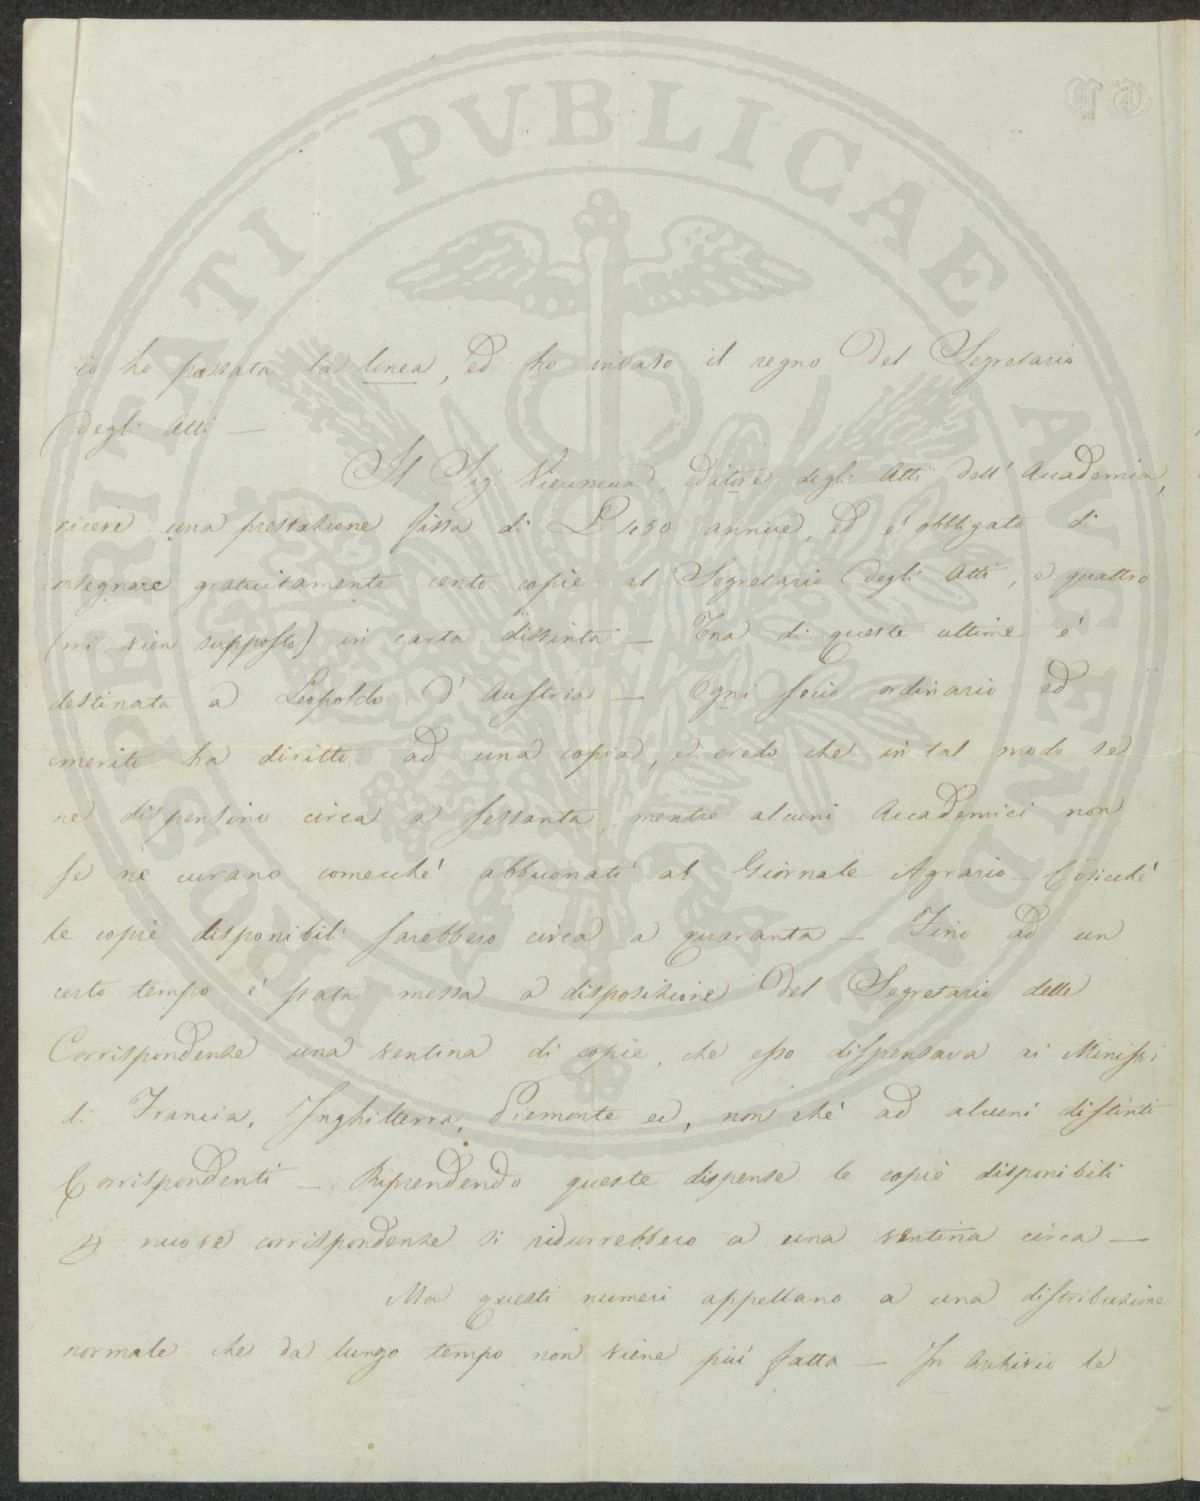 PROSPERITATI PVBLICAE AVGENDAE
io ho passata la linea, ed ho invaso il regno del Segretario
degli Atti —
Il Sig. Vieusseux, editore degli Atti dell' Accademia,
riceve una prestazione fissa di L 450 annue, ed e' obbligato di
nsegnare gratuitamente cento copie al Segretario degli Atti, e quattro
(mi vien supposto) in carta distinta — Una di queste ultime e'
destinata a Leopoldo d' Austria — Ogni socio ordinario ed
emerito ha diritto ad una copia, e credo che in tal modo se
ne dispensino circa a sessanta, mentre alcuni Accademici non
se ne curano comecché abbuonati al Giornale Agrario — Cosicché
le copie disponibili sarebbero circa a quaranta — Fino ad un
certo tempo e' stata messa a disposizione del Segretario delle
Corrispondenze una ventina di copie, che esso dispensava ai Ministri
di Francia, Inghilterra, Piemonte ec, non ché ad alcuni distinti
Corrispondenti — Riprendendo queste dispense le copie disponibili
nuove corrispondenze si ridurrebbero a una ventina circa —
Ma questi numeri appellano a una distribuzione
normale che da lungo tempo non viene piú fatta — In Archivio le